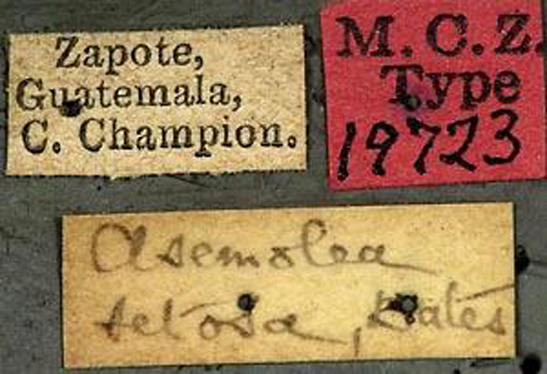 Zapote,
Guatemala,
C. Champion.
M.C.Z.
Type
19723
Asemolea
setosa, Bates